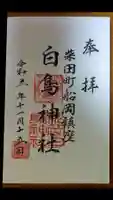 奉拝
柴田町船岡鎮座
白鳥神社
令和五年十一月十五日